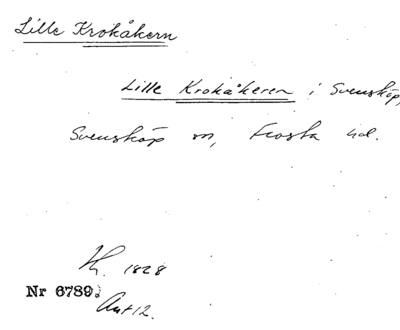 Lille Krokåkern
Lille Krokåkeren i Svensköp,
Svensköp sn, Frosta hd.
1828
Nr 6789.
Akt 12.